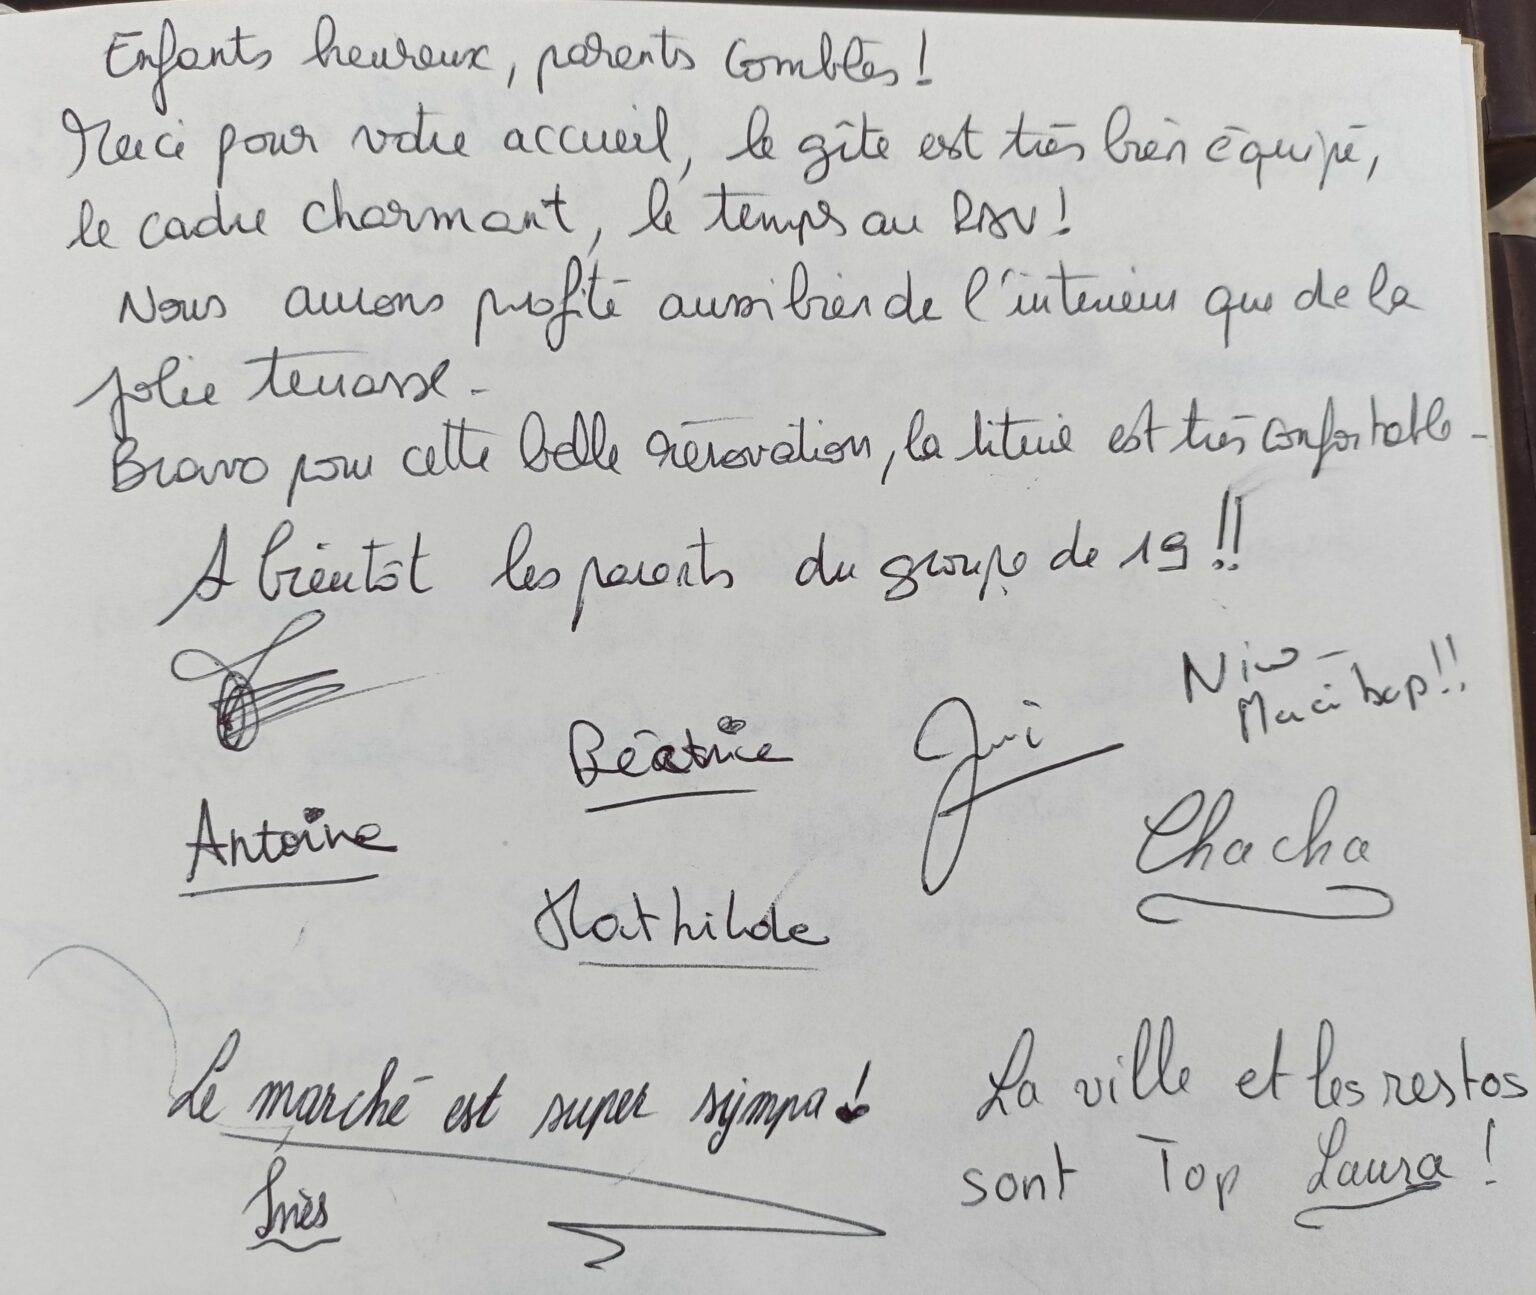 Enfants heureux, parents comblés !
Merci pour votre accueil, le gîte est très bien équipé,
le cadre charmant, le temps au RDV !
Nous aurons profité aussi bien de l'intérieur que de la
jolie terrasse.
Bravo pour cette belle rénovation, la literie est très confortable.
A bientôt les parents du groupe de 19 !!
Nico -
Merci bcp !!
Béatrice
Antoine
Chacha
Mathilde
Le marché est super sympa !
Inès
La ville et les restos
sont Top Laura !